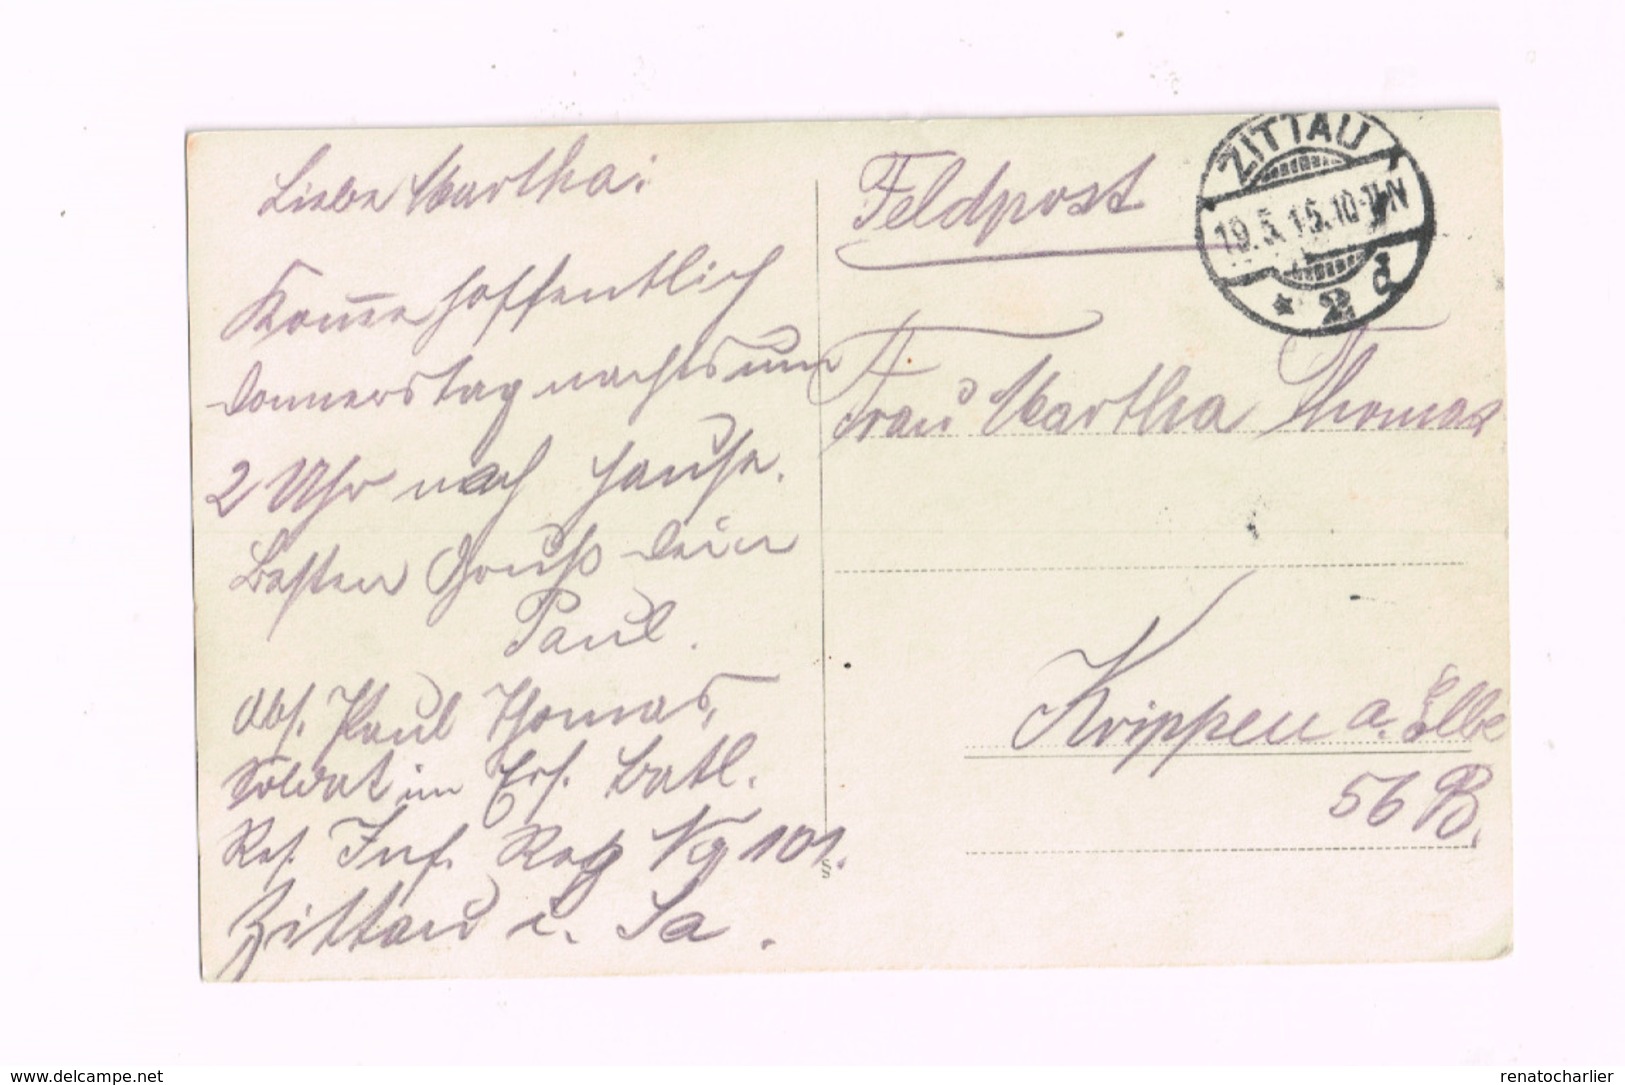 Liebe Martha!
Kom̅e hoffentlich
Donnerstag nachts um
2 Uhr nach Hause.
Besten Gruß Dein
Paul.
Abs. Paul Thomas,
Soldat im Ers. Batl.
Res. Inf. Reg No 101.
Zittau i. Sa.
Feldpost
ZITTAU
19.5.15.10-11N
* 2 d
Frau Martha Thomas
Krippen a. Elbe
56 B.
§
www.delcampe.net
renatocharlier